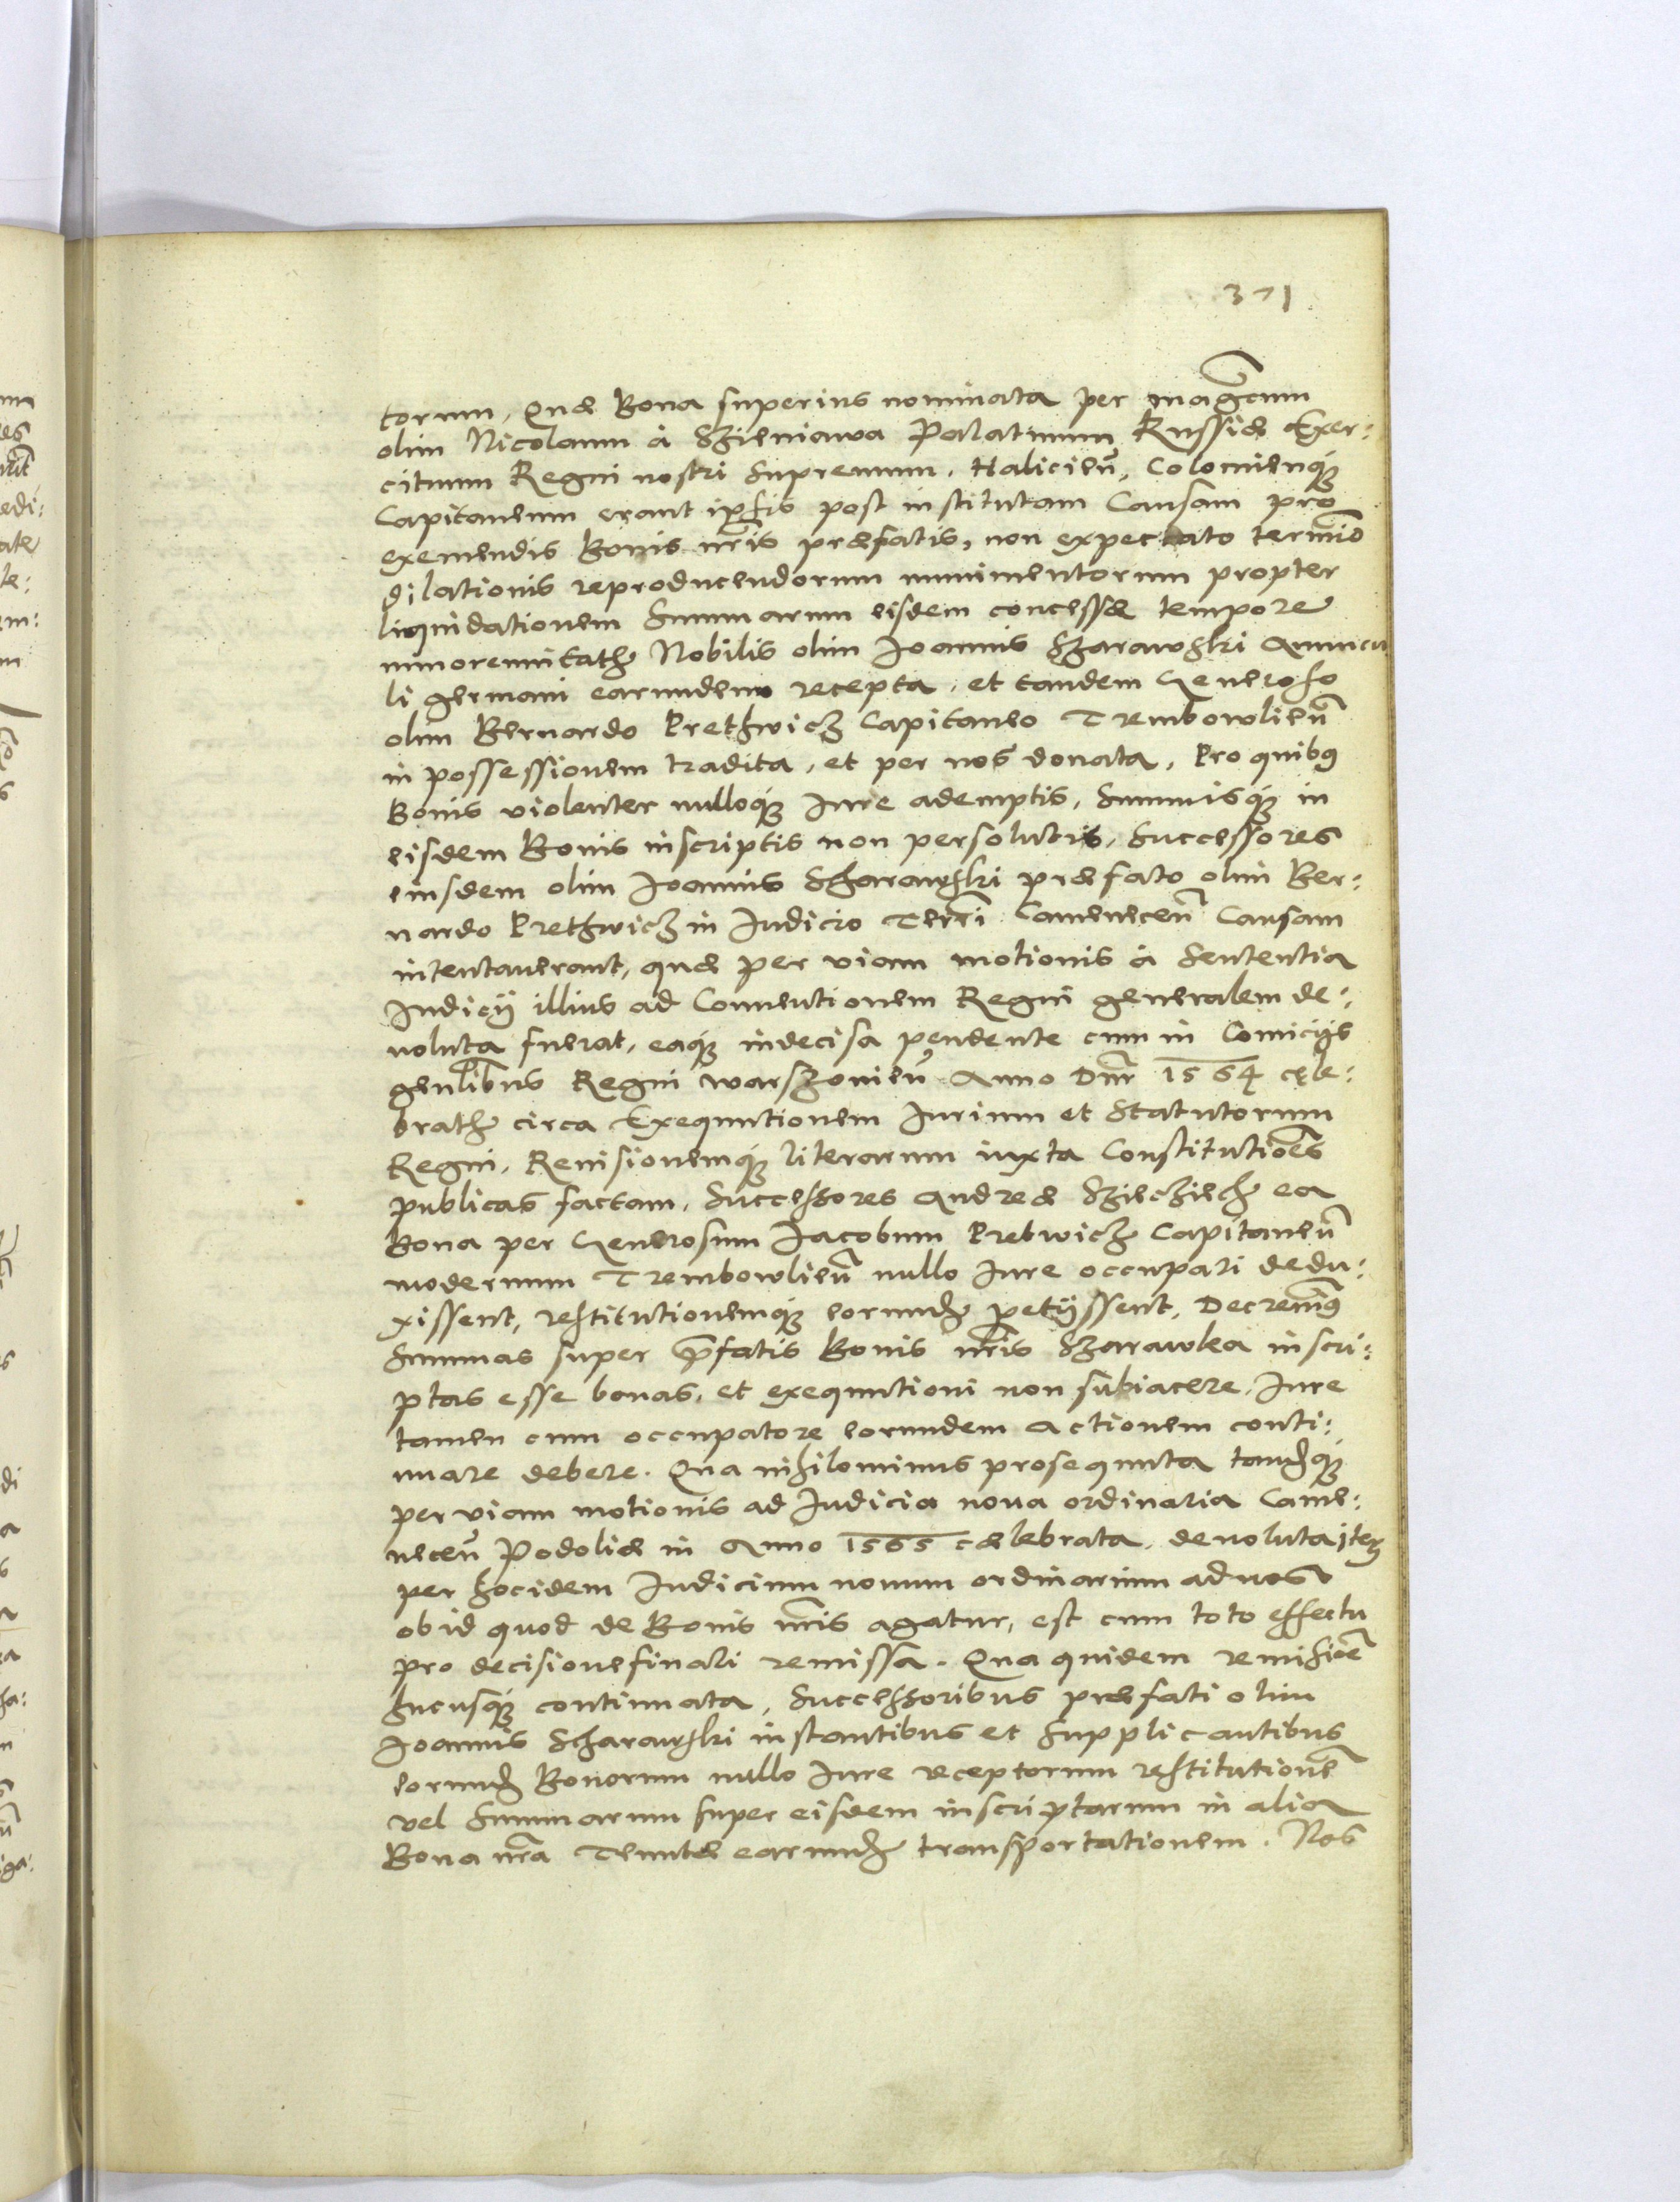 371
torum, Quæ Bona superius nominata per mag͠cum
olim Nicolaum à Szieniawa Palatinum Russiæ Exer:
cituum Regni nostri Supremum, Halicieñ, Colomieñq́ꝫ
Capitaneum erant ipsis post institutam Causam pro
exemendis Bonis nr̃is præfatis, non expectato termĩo
dilationis reproducendorum munimentorum propter
liquidationem Summarum eisdem concessæ tempore
minorennitatꝫ Nobilis olim Joannis Szarawski Auuncu
li germani earundem recepta, et tandem Generoso
olim Bernardo Prethwicz Capitaneo Trembowlieñ
in possessionem tradita, et per nos donata, Pro quibꝰ
Bonis violenter nulloq́ꝫ Iure ademptis, Summisq́ꝫ in
eisdem Bonis inscriptis non persolutis, Successores
eiusdem olim Joannis Scharawski præfato olim Ber:
nardo Prethwicz in Iudicio Terr̃i Cameneceñ Causam
intentauerant, quæ per viam motionis à Sententia
Iudicij illius ad Conuentionem Regni generalem de:
uoluta fuerat, eaq́ꝫ indecisa pendente cum in Comicijs
gen̄libus Regni warszouieñ Anno Dnĩ 1564 cęle:
bratꝫ circa Exequutionem Iurium et Statutorum
Regni, Reuisionemq́ꝫ literarum iuxta Constitutiões
publicas factam, Successores Andreæ Szieczięcꝫ ea
Bona per Generosum Jacobum Pretwicz Capitaneũ
modernum Trembowlieñ nullo Iure occupari dedu:
xissent, restitutionemq́ꝫ eorundꝫ petijssent, Decreuimꝰ
Summas super p̃fatis Bonis nr̃is Szarawka inscri:
ptas esse bonas, et exequutioni non subiacere, Iure
tamen cum occupatore eorundem Actionem conti:
nuare debere. Qua nihilominus prosequuta tandꝫq́ꝫ
per viam motionis ad Iudicia noua ordinaria Came:
neceñ Podoliæ in Anno 1565 cælebrata, deuoluta itꝫ
per hocidem Iudicium nouum ordinarium ad nos
ob id quod de Bonis nr̃is agatur, est cum toto effectu
pro decisione finali remissa. Qua quidem remissiõe
hucusq́ꝫ continuata, Successoribus præfati olim
Joannis Scharawski instantibus et Supplicantibus
eorundꝫ Bonorum nullo Iure receptorum restitutionẽ
vel Summarum super eisdem inscriptarum in alia
Bona nr̃a Tentæ earundꝫ transportationem. Nos